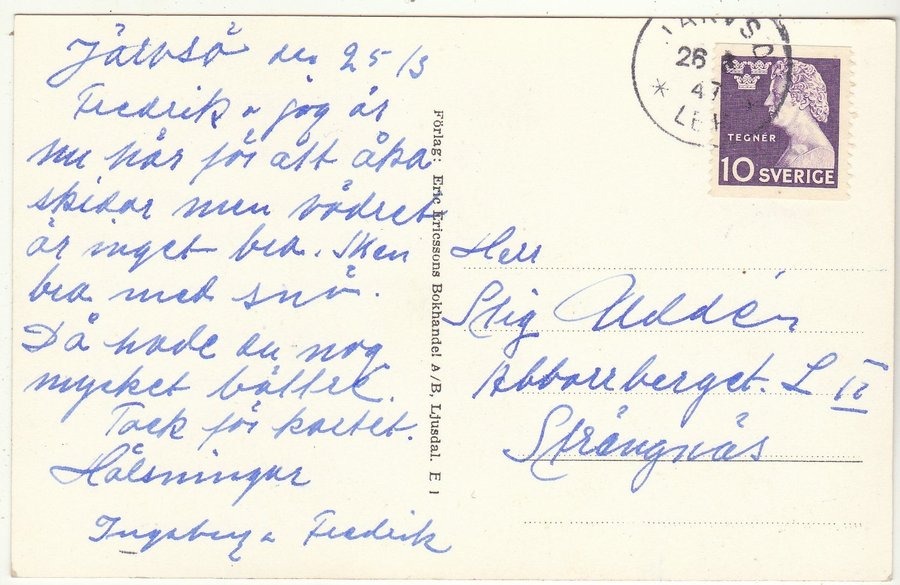 Järvsö den 25/3
Fredrik o jag är
nu här för att åka
skidor men vädret
är inget bra. Men
bra med snö.
Då hade du nog
mycket bättre.
Tack för kortet.
Hälsningar
Ingeborg o Fredrik
Förlag: Eric Ericssons Bokhandel A/B, Ljusdal. E 1
JÄRVSÖ
26
47
TEGNÉR
10 SVERIGE
Herr
Stig Uddén
Abborrberget. L II
Strängnäs